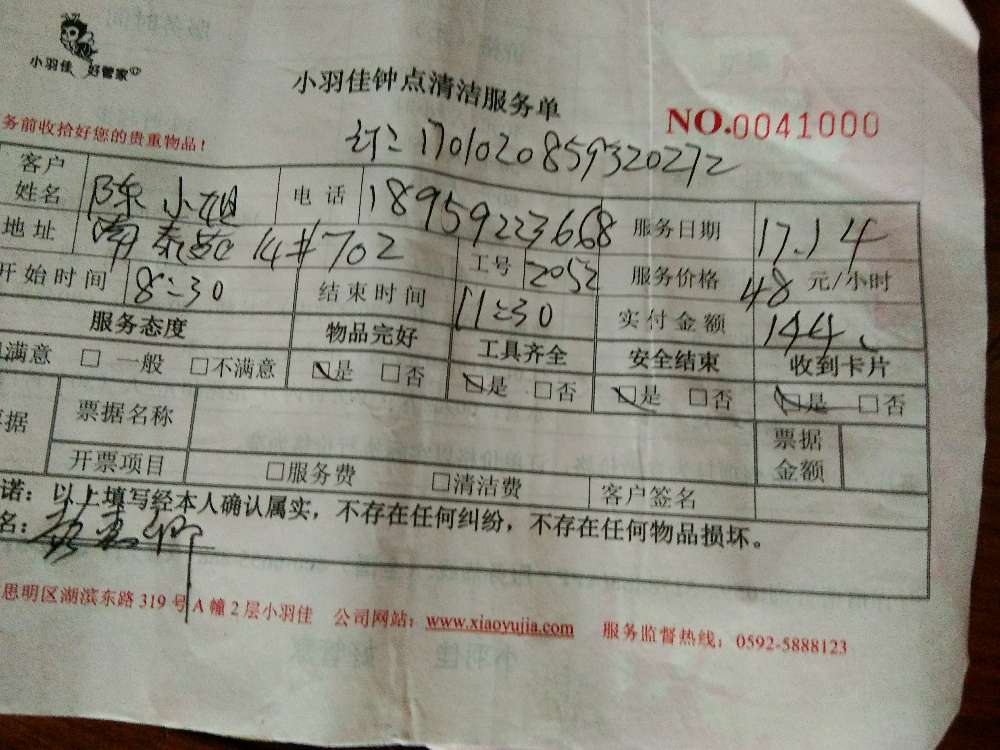 小羽佳 好管家
小羽佳钟点清洁服务单
NO.0041000
务前收拾好您的贵重物品！
订：1701020859320272
客户姓名 陈小姐 电话 18959223668 服务日期 17.1.4
地址 14#702 工号 2052 服务价格 48 元/小时
开始时间 8:30 结束时间 11:30 实付金额 144
服务态度 物品完好 工具齐全 安全结束 收到卡片
满意 □ 一般 □不满意 □是 □否 □是 □否 □是 □否 □是 □否
据 票据名称 票据金额
开票项目 □服务费 □清洁费 客户签名
诺：以上填写经本人确认属实，不存在任何纠纷，不存在任何物品损坏。
名：
思明区湖滨东路 319 号 A 幢 2 层小羽佳 公司网站：www.xiaoyujia.com 服务监督热线：0592-5888123